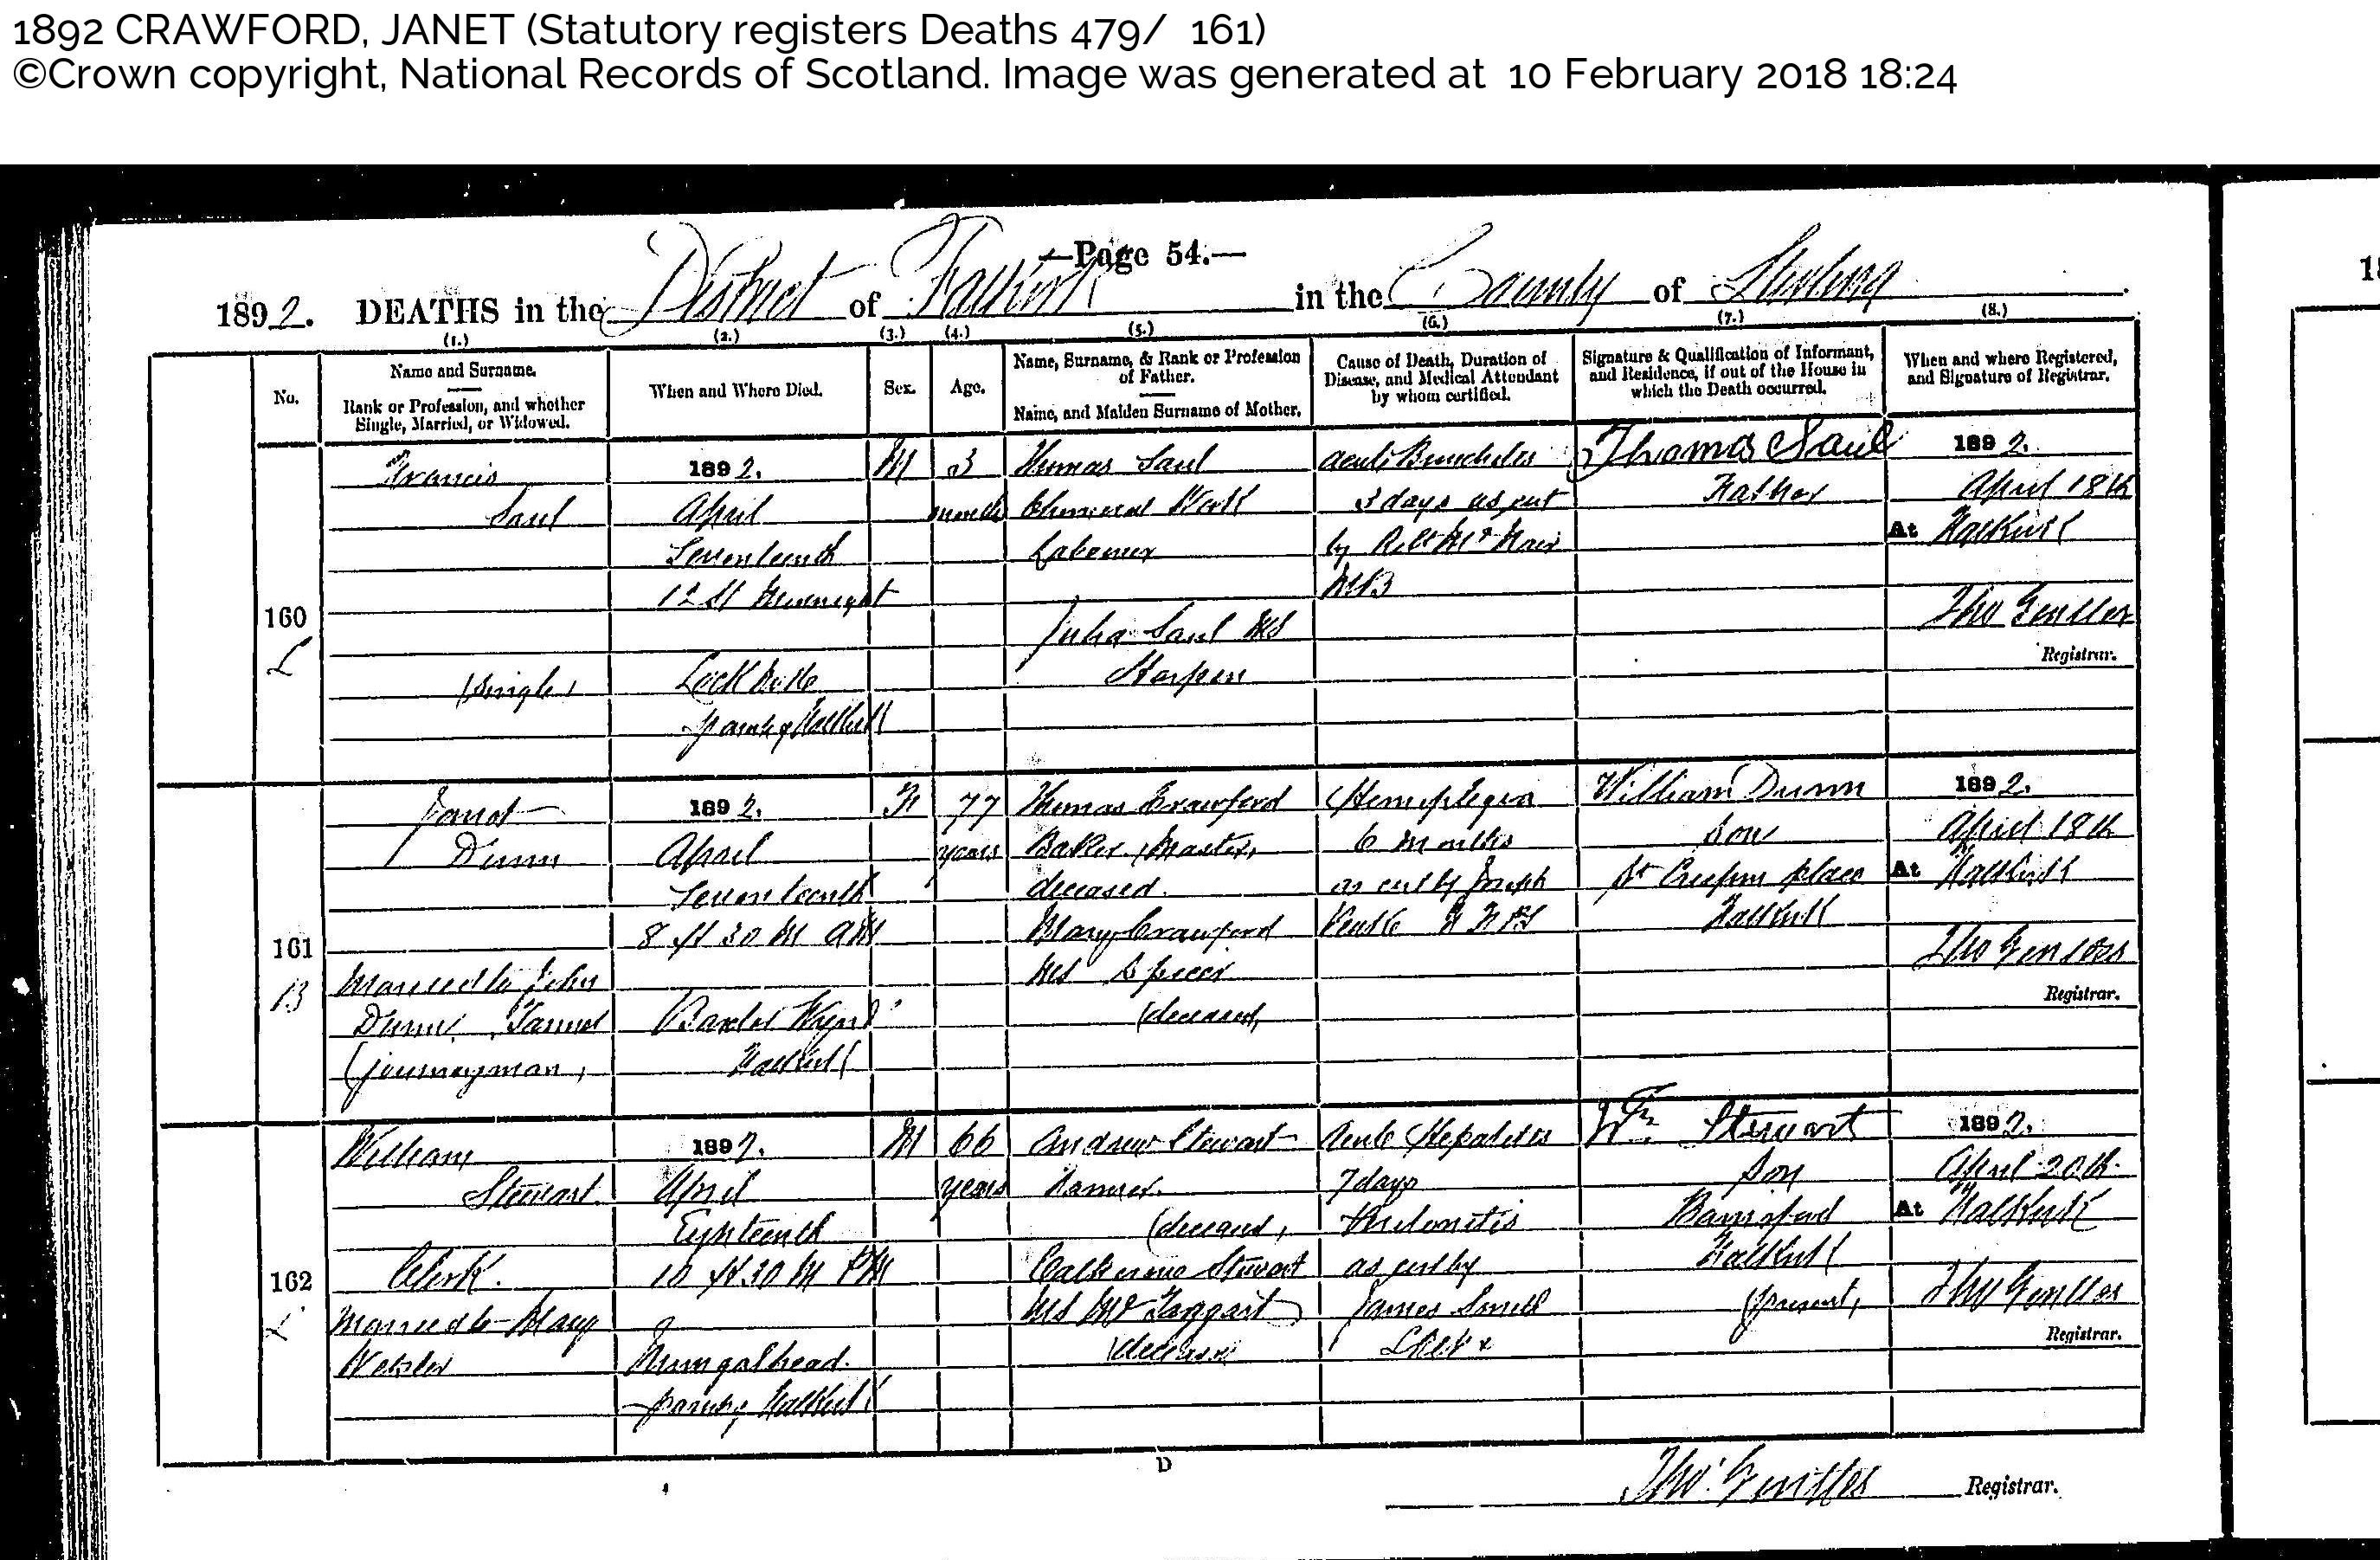 1892 CRAWFORD, JANET (Statutory registers Deaths 479/ 161)
©Crown copyright, National Records of Scotland. Image was generated at 10 February 2018 18:24
—Page 54.—
1892. DEATHS in the District of Falkirk in the County of Stirling
(1.) (2.) (3.) (4.) (5.) (6.) (7.) (8.)
No.
Name and Surname.
Rank or Profession, and whether
Single, Married, or Widowed.
When and Where Died.
Sex.
Age.
Name, Surname, & Rank or Profession
of Father.
Name, and Maiden Surname of Mother.
Cause of Death, Duration of
Disease, and Medical Attendant
by whom certified.
Signature & Qualification of Informant,
and Residence, if out of the House in
which the Death occurred.
When and where Registered,
and Signature of Registrar.
160
L
Francis
Saul
(Single)
1892.
April
Seventeenth
12 H Midnight
parish of Falkirk
M
3
months
Thomas Saul
Chemical Work
Labourer
Julia Saul MS
Acute Bronchitis
3 days as cert
by Robt McNair
MB
Thomas Saul
Father
1892.
April 18th
At Falkirk
Tho Gentles
Registrar.
161
B
Janet
Dunn
Married to John
Dunn, Tanner
(journeyman)
1892.
April
Seventeenth
8 H 30 M AM
Baxter Wynd
Falkirk
F
77
years
Thomas Crawford
Baker (Master)
deceased.
Mary Crawford
MS Speirs
(deceased)
Hemiplegia
6 Months
as cert by Joseph
William Dunn
Son
St Crispin place
Falkirk
1892.
April 18th
At Falkirk
Tho Gentles
Registrar.
162
L
William
Stewart
Clerk.
Married to Mary
1892.
April
Eighteenth
10 H 30 M PM
Mungalhead.
parish of Falkirk
M
66
years
Andrew Stewart
(deceased)
Catherine Stewart
MS McTaggart
(deceased)
Acute Hepatitis
7 days
Peritonitis
as cert by
James Smith
Wm. Stewart
Son
Bainsford
Falkirk
(present)
1892.
April 20th
At Falkirk
Tho Gentles
Registrar.
D
Tho. Gentles Registrar.